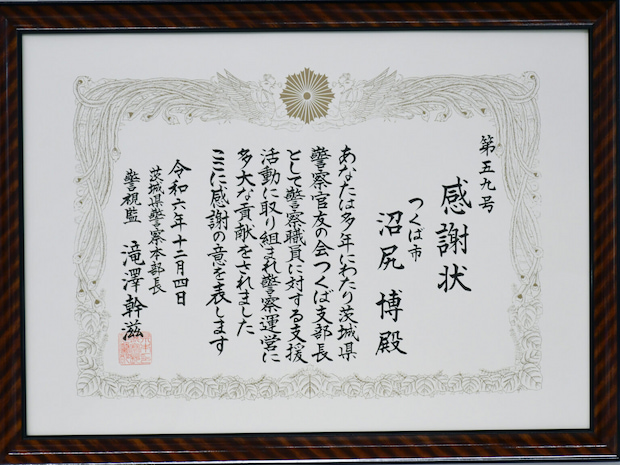 第五九号
感謝状
つくば市
沼尻博殿
あなたは多年にわたり茨城県
警察官友の会つくば支部長
として警察職員に対する支援
活動に取り組まれ警察運営に
多大な貢献をされました
ここに感謝の意を表します
令和六年十二月四日
茨城県警察本部長
警視監 滝澤幹滋